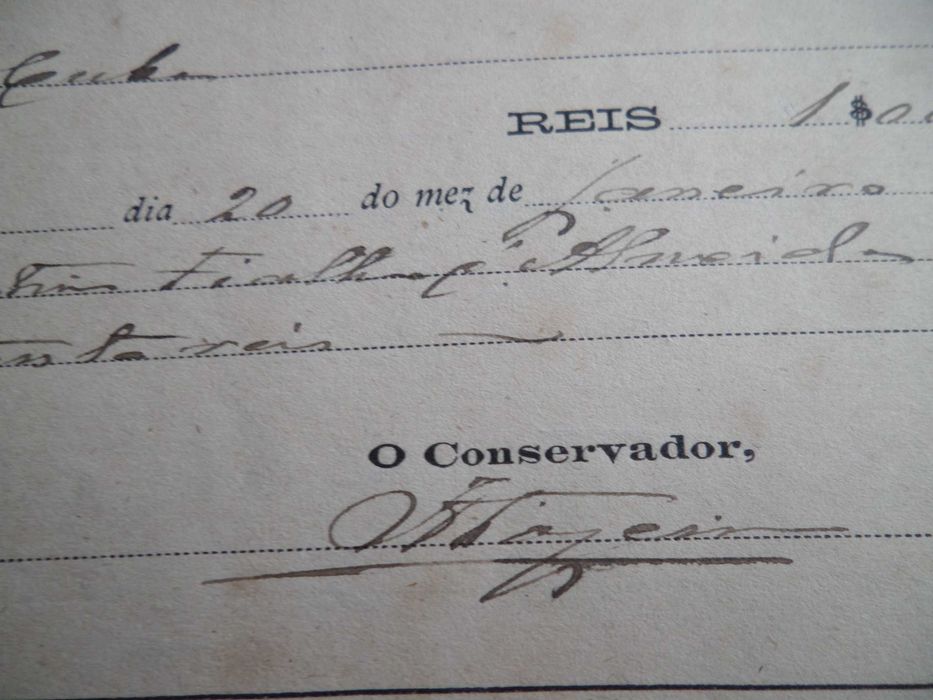 Cuba
REIS 1$00
dia 20 do mez de Janeiro
Fialho d'Almeida
nta reis
O Conservador,